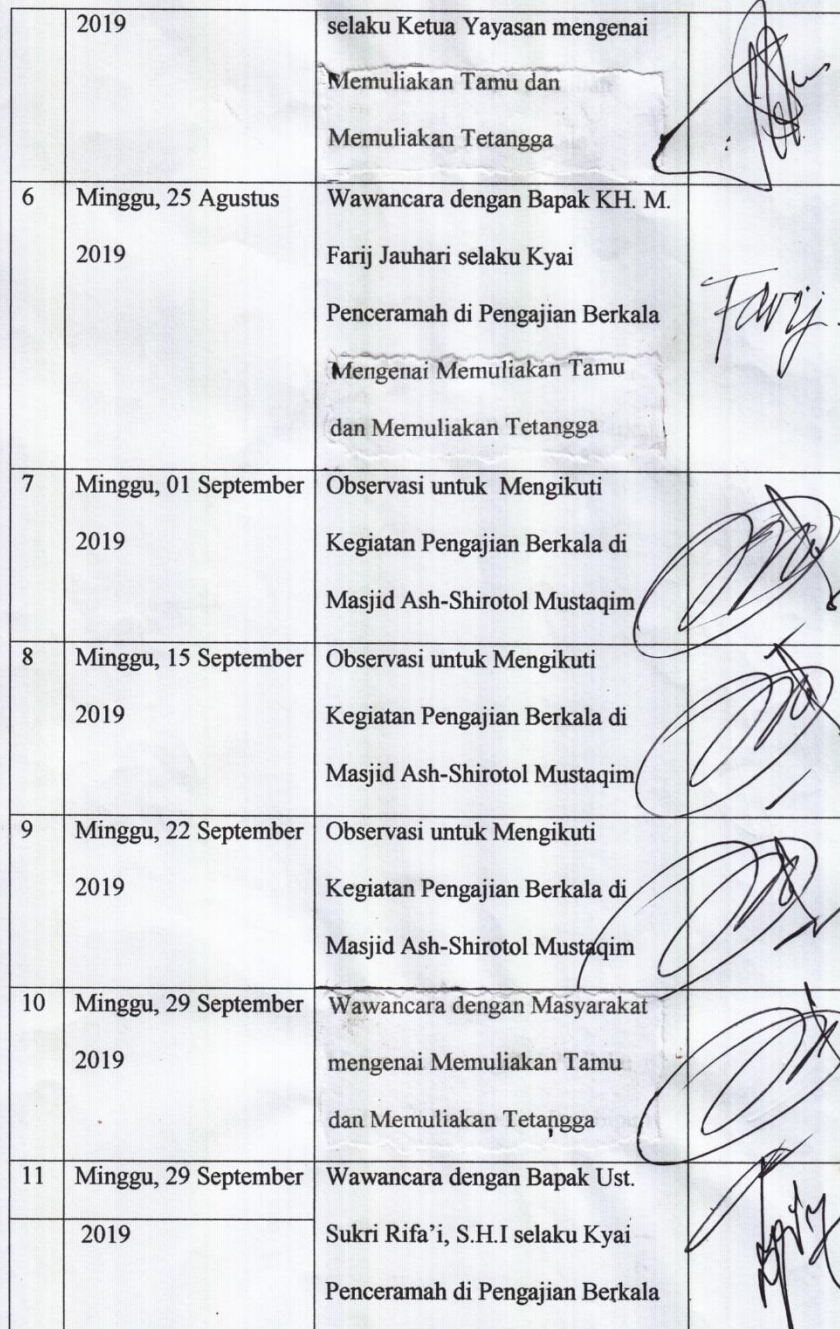 2019 selaku Ketua Yayasan mengenai
Memuliakan Tamu dan
Memuliakan Tetangga
6 Minggu, 25 Agustus Wawancara dengan Bapak KH. M.
2019 Farij Jauhari selaku Kyai
Penceramah di Pengajian Berkala
Farij
Mengenai Memuliakan Tamu
dan Memuliakan Tetangga
7 Minggu, 01 September Observasi untuk Mengikuti
2019 Kegiatan Pengajian Berkala di
Masjid Ash-Shirotol Mustaqim
8 Minggu, 15 September Observasi untuk Mengikuti
2019 Kegiatan Pengajian Berkala di
Masjid Ash-Shirotol Mustaqim
9 Minggu, 22 September Observasi untuk Mengikuti
2019 Kegiatan Pengajian Berkala di
Masjid Ash-Shirotol Mustaqim
10 Minggu, 29 September Wawancara dengan Masyarakat
2019 mengenai Memuliakan Tamu
dan Memuliakan Tetangga
11 Minggu, 29 September Wawancara dengan Bapak Ust.
2019 Sukri Rifa'i, S.H.I selaku Kyai
Penceramah di Pengajian Berkala